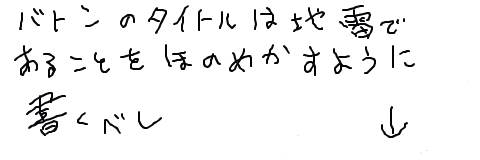 バトンのタイトルは地雷で
あることをほのめかすように
書くべし ↓